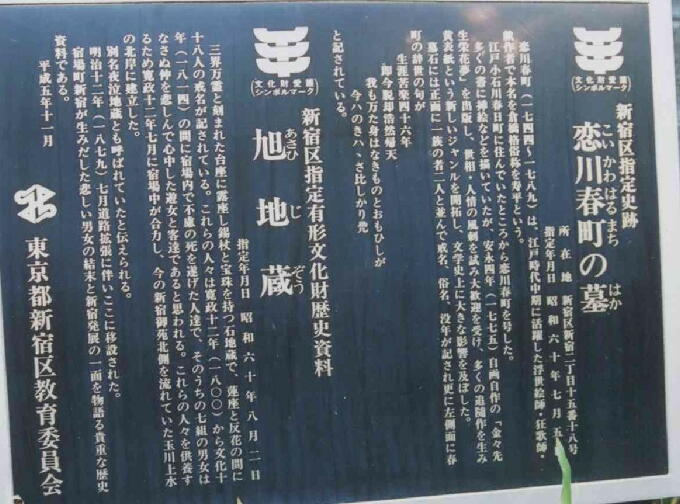 文化財愛護
シンボルマーク
新宿区指定史跡
恋川春町の墓
こいかわはるまち はか
所在地 新宿区新宿二丁目十五番十八号
指定年月日 昭和六十年七月五
恋川春町(一七四四~一七八九)は、江戸時代中期に活躍した浮世絵師・狂歌師・
戯作者で本名を倉橋格俗称を寿平という。
江戸小石川春日町に住んでいたところから恋川春町を号した。
多くの書に挿絵などを描いていたが、安永四年(一七七五)自画自作の「金々先
生栄花夢」を出版し、世相・人情の風刺を試み大歓迎を受け、多くの追随作を生み
黄表紙という新しいジャンルを開拓し、文学史上に大きな影響を及ぼした。
墓石には正面に一族の者二人と並んで戒名、俗名、没年が記され更に左側面に春
町の辞世の句が
生涯苦楽四十六年
即今脱却浩然帰天
我も万た身はなきものとおもひしが
今ハのきハ、さ比しかり
と記されている。
文化財愛護
シンボルマーク
新宿区指定有形文化財歴史資料
旭地蔵
あさひ じ ぞう
指定年月日 昭和六十年八月二日
三界万霊と刻まれた台座に露座し錫杖と宝珠を持つ石地蔵で、蓮座と反花の間に
十八人の戒名が記されている。これらの人々は寛政十二年(一八〇〇)から文化十
年(一八一四)の間に宿場内で不慮の死を遂げた人達で、そのうちの七組の男女は
なさぬ仲を悲しんで心中した遊女と客達であると思われる。これらの人々を供養す
るため寛政十二年七月に宿場中が合力し、今の新宿御苑北側を流れていた玉川上水
の北岸に建立した。
別名夜泣地蔵とも呼ばれていたと伝えられる。
明治十二年(一八七九)七月道路拡張に伴いここに移設された。
宿場町新宿が生みだした悲しい男女の結末と新宿発展の一面を物語る貴重な歴史
資料である。
平成五年十一月
東京都新宿区教育委員会